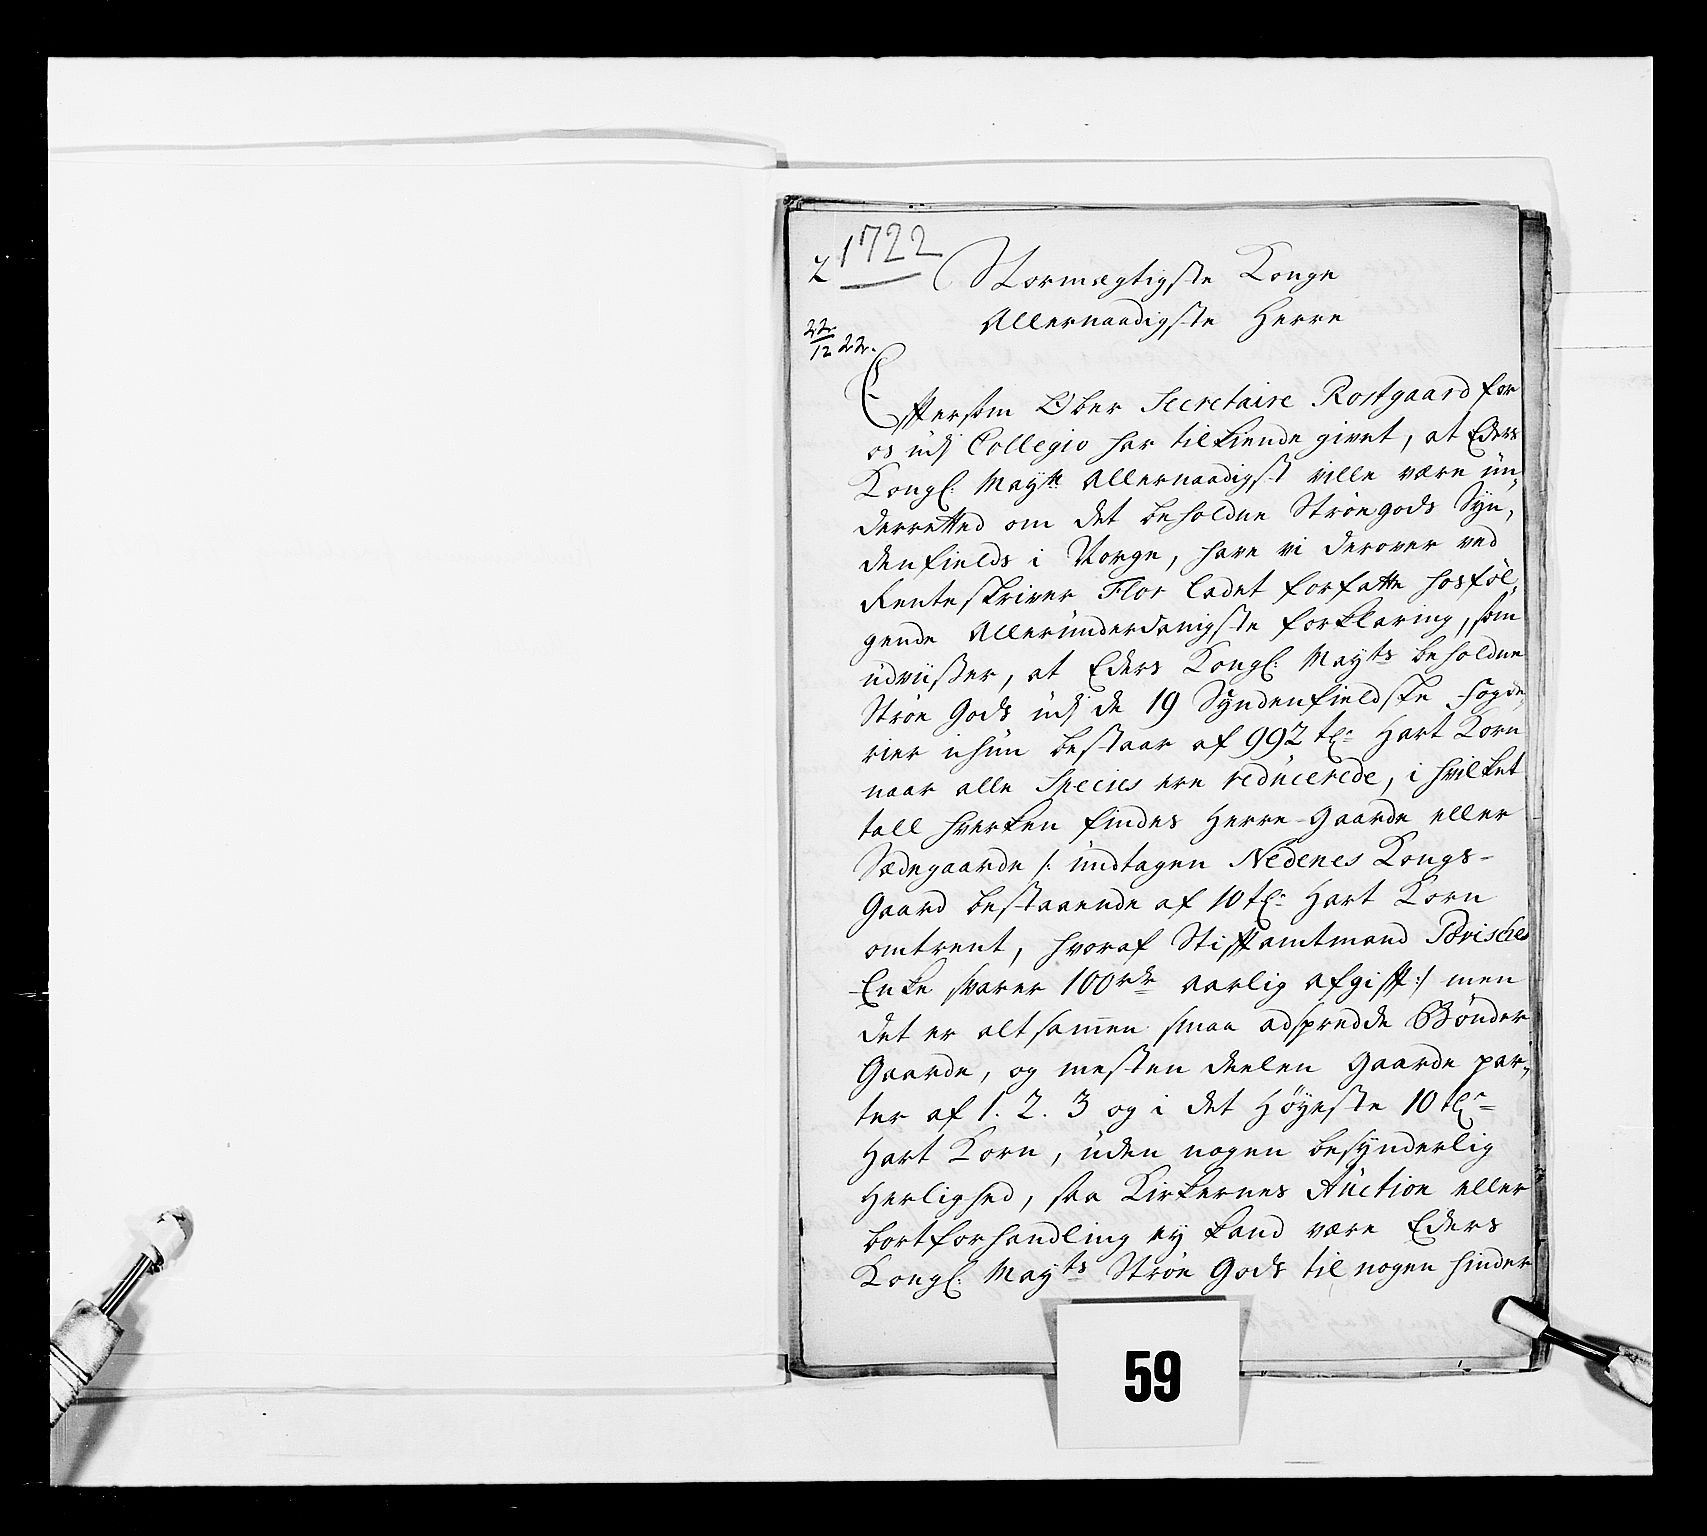 1722
2
Stormægtigste Konge
Allernaadigste Herre
22/12 22.
Eftersom Ober Secretaire Rostgaard for
os udj Collegio har tilkiende givet, at Eders
Kongl: Mayt: Allernaadigst ville være ün,
derretted om det beholdne Strøegods Syn,
denfields i Norge, have vi derover ved
Renteskriver Flor ladet forfatte hosføl,
gende Alleründerdanigste forklaring, som
udviisser, at Eders Kongl: Mayts beholdne
Strøe Gods üdj de 19 Syndenfieldske fogde,
rier ichün bestaar af 992 tlr Hart Korn
naar alle Species ere redücerede, i hvilket
tall hverken findes Herre-Gaarde eller
Sædegaarde /: ündtagen Nedenes Kongs-
Gaard bestaaende af 10 tlr Hart Korn
omtrent, hvoraf Stiftamtmand Tørisches
Enke svarer 100 rdr aarlig afgift :/ men
det er altsamen smaa adspredde Bønder
Gaarde, og mesten deelen Gaarde par,
ter af 1. 2. 3 og i det Høyeste 10 tlr
Hart Korn, üden nogen besynderlig
Herlighed, saa Kirkernes Auction eller
bortforhandling ey kand være Eders
Kongl: Mayts Strøe Gods til nogen hinder
59